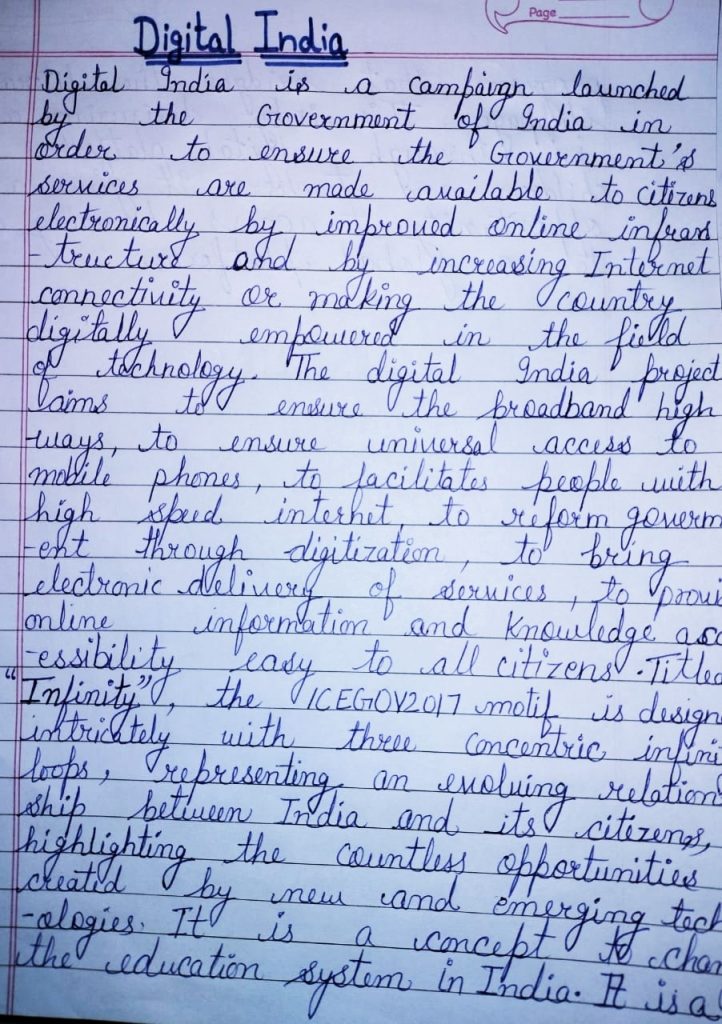 Page
Digital India
Digital India is a campaign launched
by the Government of India in
order to ensure the Government's
services are made available to citizens
electronically by improved online infras
-tructure and by increasing Internet
connectivity or making the country
digitally empowered in the field
of technology. The digital India project
aims to ensure the broadband high
-ways, to ensure universal access to
mobile phones, to facilitates people with
high speed internet, to reform governm
-ent through digitization, to bring
electronic delivery of services, to provi
online information and knowledge acc
-essibility easy to all citizens. Titled
"Infinity", the ICEGOV2017 motif is design
intricately with three concentric infini
loops, representing an evolving relation
ship between India and its citezens,
highlighting the countless opportunities
created by new and emerging tech
-ologies. It is a concept to chan
the education system in India. It is a